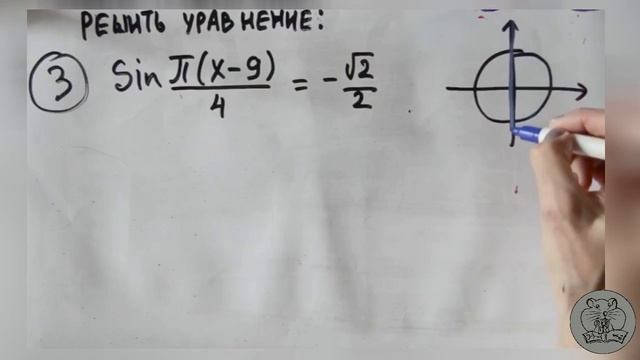 РЕШИТЬ УРАВНЕНИЕ:
3 Sin π(x-9)/4 = -√2/2